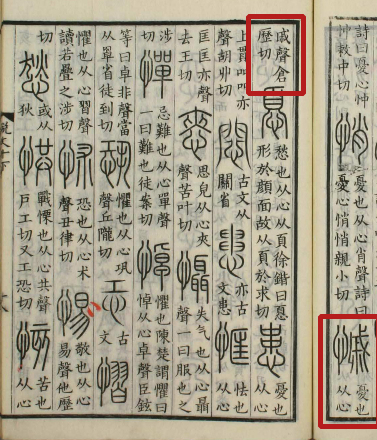 詩曰憂心忡
忡敕中切
悄
憂也从心肖聲詩曰
憂心悄悄親小切
慽
憂也
从心
戚聲倉
歷切
𢝊
愁也从心从頁徐鍇曰𢝊
形於顏面故从頁於求切
患
憂也
从心
上貫吅吅亦
聲胡丱切
古文从
關省
亦古
文患
恇
怯也
从心
匡匡亦聲
去王切
㥦
思皃从心夾
聲苦叶切
懾
失气也从心聶
聲一曰服也之
涉切
憚
忌難也从心單聲
一曰難也徒案切
悼
懼也陳楚謂懼曰
悼从心卓聲臣鉉
等曰卓非聲當
从罩省徒到切
恐
懼也从心巩
聲丘隴切
古
文
慴
懼也从心習聲
讀若疊之涉切
怵
恐也从心术
聲丑律切
惕
敬也从心
易聲他歷
切
悐
或从
狄
㤨
戰慄也从心共聲
戶工切又工恐切
㤥
苦也
从心